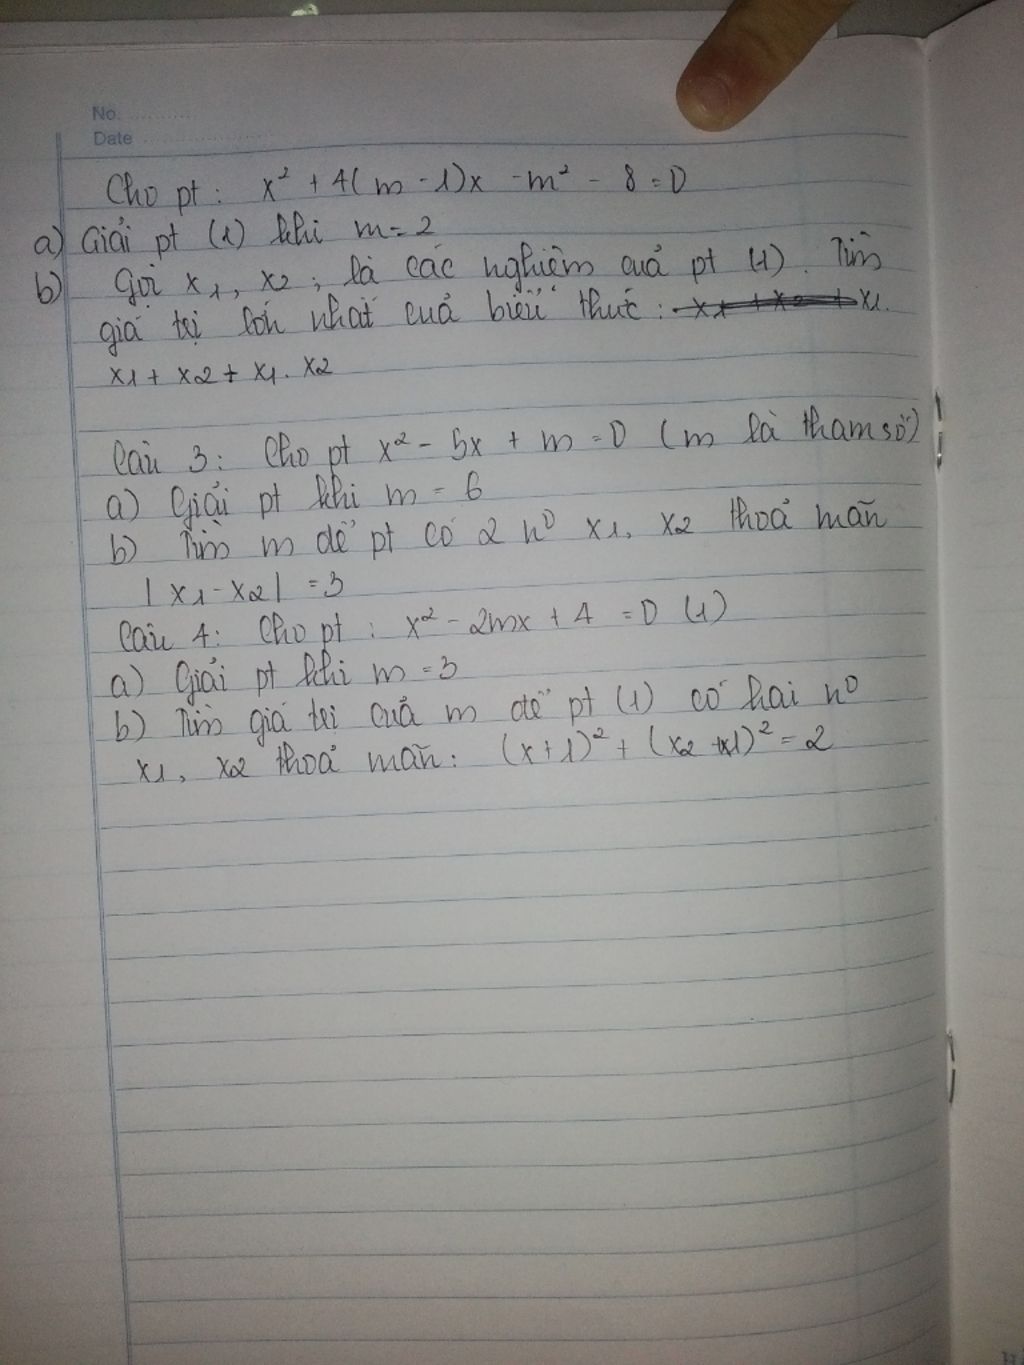 No.
Date
Cho pt: x² + 4(m - 1)x - m² - 8 = 0
a) Giải pt (1) khi m = 2
b) Gọi x1, x2; là các nghiệm cuả pt (1). Tìm
giá trị lớn nhất cuả biểu thức: x1 + x2 + x1.
x1 + x2 + x1. x2
Câu 3: Cho pt x² - 5x + m = 0 (m là tham số)
a) Giải pt khi m = 6
b) Tìm m để pt có 2 n⁰ x1, x2 thoả mãn
|x1 - x2| = 3
Câu 4: Cho pt: x² - 2mx + 4 = 0 (1)
a) Giải pt khi m = 3
b) Tìm giá trị cuả m để pt (1) có hai n⁰
x1, x2 thoả mãn: (x+1)² + (x2 +1)² = 2